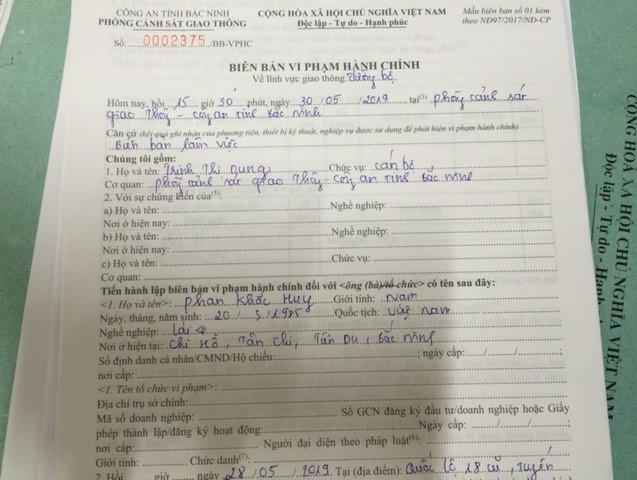 CÔNG AN TỈNH BẮC NINH
PHÒNG CẢNH SÁT GIAO THÔNG
Số: 0002375 /BB-VPHC
CỘNG HÒA XÃ HỘI CHỦ NGHĨA VIỆT NAM
Độc lập - Tự do - Hạnh phúc
Mẫu biên bản số 01 kèm
theo NĐ97/2017/NĐ-CP
BIÊN BẢN VI PHẠM HÀNH CHÍNH
Về lĩnh vực giao thông đường bộ
Hôm nay, hồi 15 giờ 30 phút, ngày 30 / 05 / 2019, tại(3) phòng cảnh sát
giao thông - công an tỉnh Bắc Ninh
Căn cứ (kết quả ghi nhận của phương tiện, thiết bị kỹ thuật, nghiệp vụ được sử dụng để phát hiện vi phạm hành chính)
Biên bản làm việc
Chúng tôi gồm:
1. Họ và tên: Trịnh Thị Dung Chức vụ: cán bộ
Cơ quan: phòng cảnh sát giao thông - công an tỉnh Bắc Ninh
2. Với sự chứng kiến của(5):
a) Họ và tên: Nghề nghiệp:
Nơi ở hiện nay:
b) Họ và tên: Nghề nghiệp:
Nơi ở hiện nay:
c) Họ và tên: Chức vụ:
Cơ quan:
Tiến hành lập biên bản vi phạm hành chính đối với <ông (bà)/tổ chức> có tên sau đây:
<1. Họ và tên>: Phan Khắc Huy Giới tính: Nam
Ngày, tháng, năm sinh: 20 / 3 / 1985 Quốc tịch: Việt Nam
Nghề nghiệp: Lái xe
Nơi ở hiện tại: Chi Hồ, Tân Chi, Tiên Du, Bắc Ninh
Số định danh cá nhân/CMND/Hộ chiếu: ; ngày cấp: / / ;
nơi cấp:
<1. Tên tổ chức vi phạm>:
Địa chỉ trụ sở chính:
Mã số doanh nghiệp:
Số GCN đăng ký đầu tư/doanh nghiệp hoặc Giấy
phép thành lập/đăng ký hoạt động: Ngày cấp: / / ;
nơi cấp: Người đại diện theo pháp luật(6):
Giới tính: Chức danh(7):
2. Hồi giờ , ngày 28 / 05 / 2019 Tại (địa điểm): Quốc lộ 18 cũ, Tuyến
CỘNG HOÀ XÃ HỘI CHỦ NGHĨA VIỆT NAM
Độc lập - Tự do - Hạnh